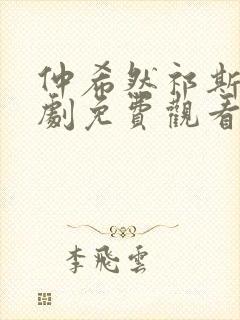 仲希然祁斯
劇免費觀看
李飛雲